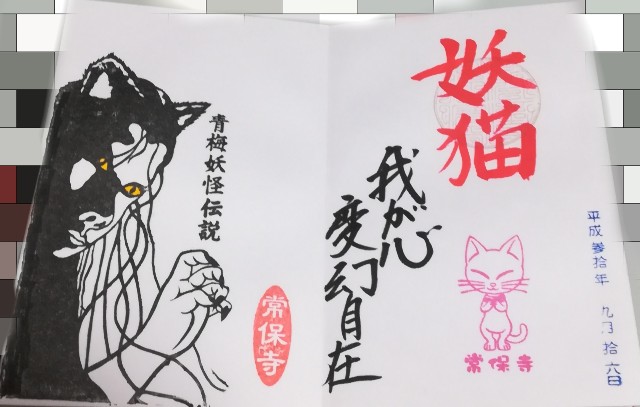 妖猫
我が心
変幻自在
平成参拾年 九月拾六日
常保寺
青梅妖怪伝説
常保寺